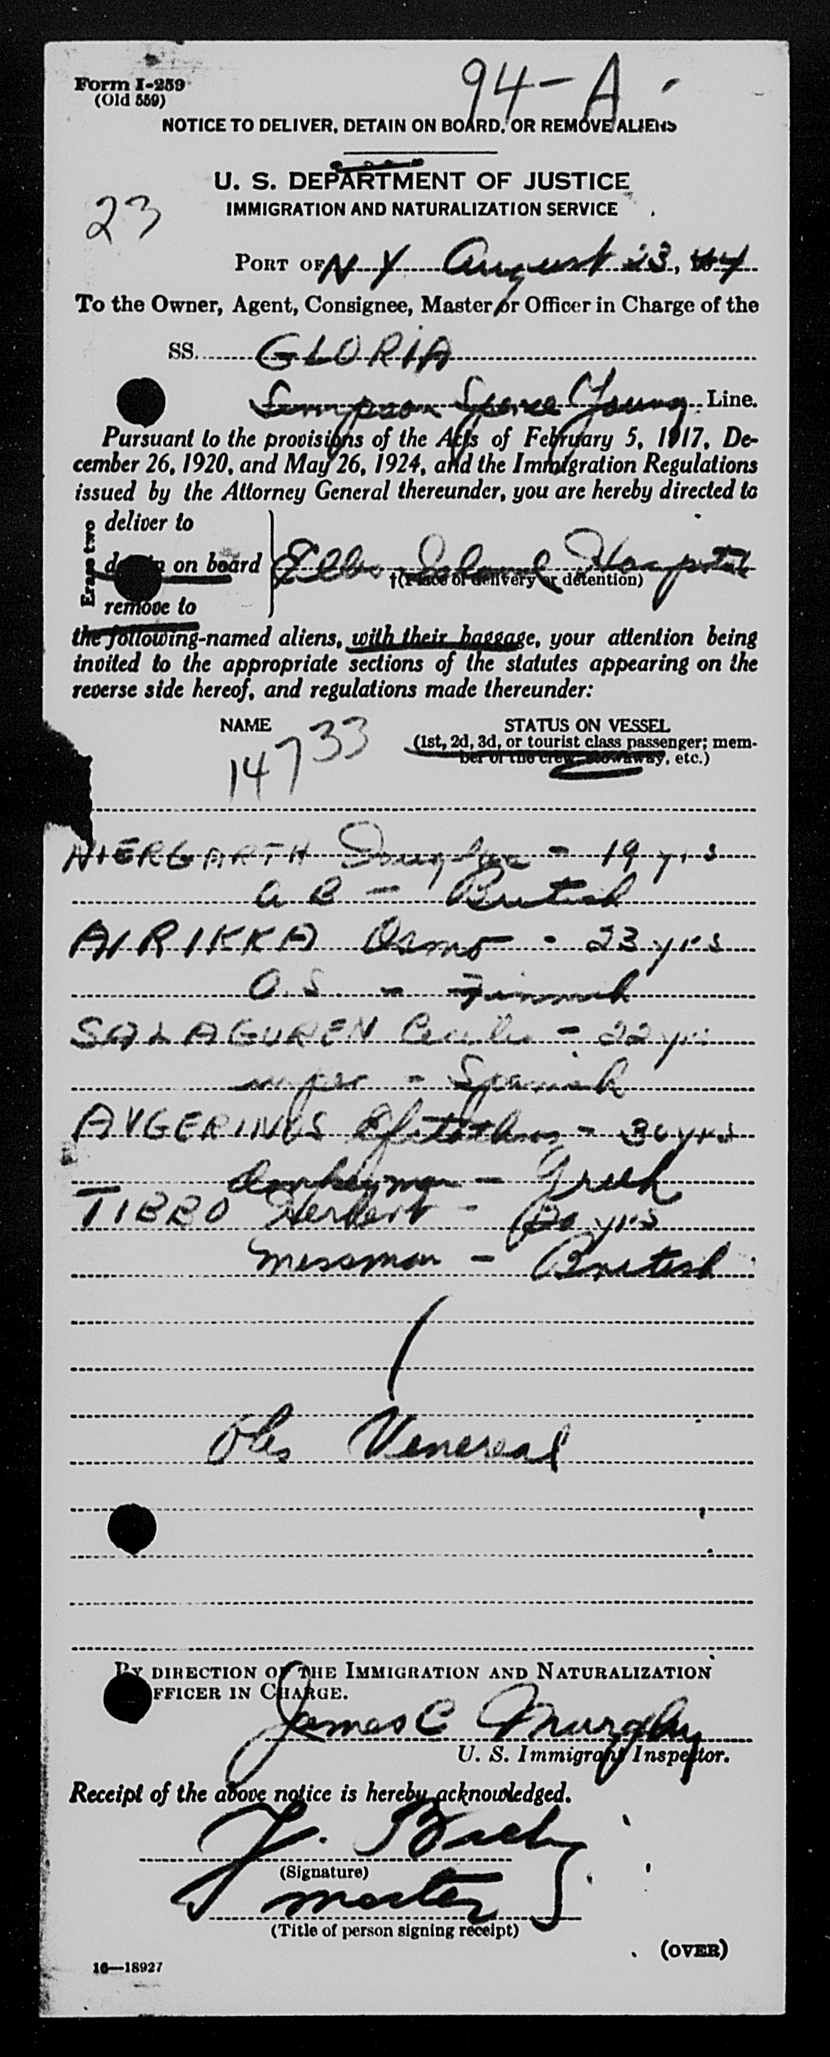 Form I-259
(Old 559)
94-A
NOTICE TO DELIVER, DETAIN ON BOARD, OR REMOVE ALIENS
U. S. DEPARTMENT OF JUSTICE
IMMIGRATION AND NATURALIZATION SERVICE
23
PORT OF N Y August 23, 44
To the Owner, Agent, Consignee, Master or Officer in Charge of the
SS. GLORIA
Simpson Spence Young Line.
Pursuant to the provisions of the Acts of February 5, 1917, De-
cember 26, 1920, and May 26, 1924, and the Immigration Regulations
issued by the Attorney General thereunder, you are hereby directed to
Erase two
deliver to
detain on board
remove to
Ellis Island Hospital
†(Place of delivery or detention)
the following-named aliens, with their baggage, your attention being
invited to the appropriate sections of the statutes appearing on the
reverse side hereof, and regulations made thereunder:
NAME
STATUS ON VESSEL
(1st, 2d, 3d, or tourist class passenger; mem-
ber of the crew, stowaway, etc.)
14733
NIERGARTH Douglas - 19 yrs
A B - British
AIRIKKA Osmo - 23 yrs
O.S. - Finnish
SALAGUREN - 22 yrs
wiper - Spanish
AVGERINOS - 30 yrs
Donkeyman - Greek
TIBBO Herbert - 20 yrs
Messman - British
Obs Venereal
BY DIRECTION OF THE IMMIGRATION AND NATURALIZATION
OFFICER IN CHARGE.
James C Murphy
U. S. Immigrant Inspector.
Receipt of the above notice is hereby acknowledged.
(Signature)
master
(Title of person signing receipt)
(OVER)
16—18927